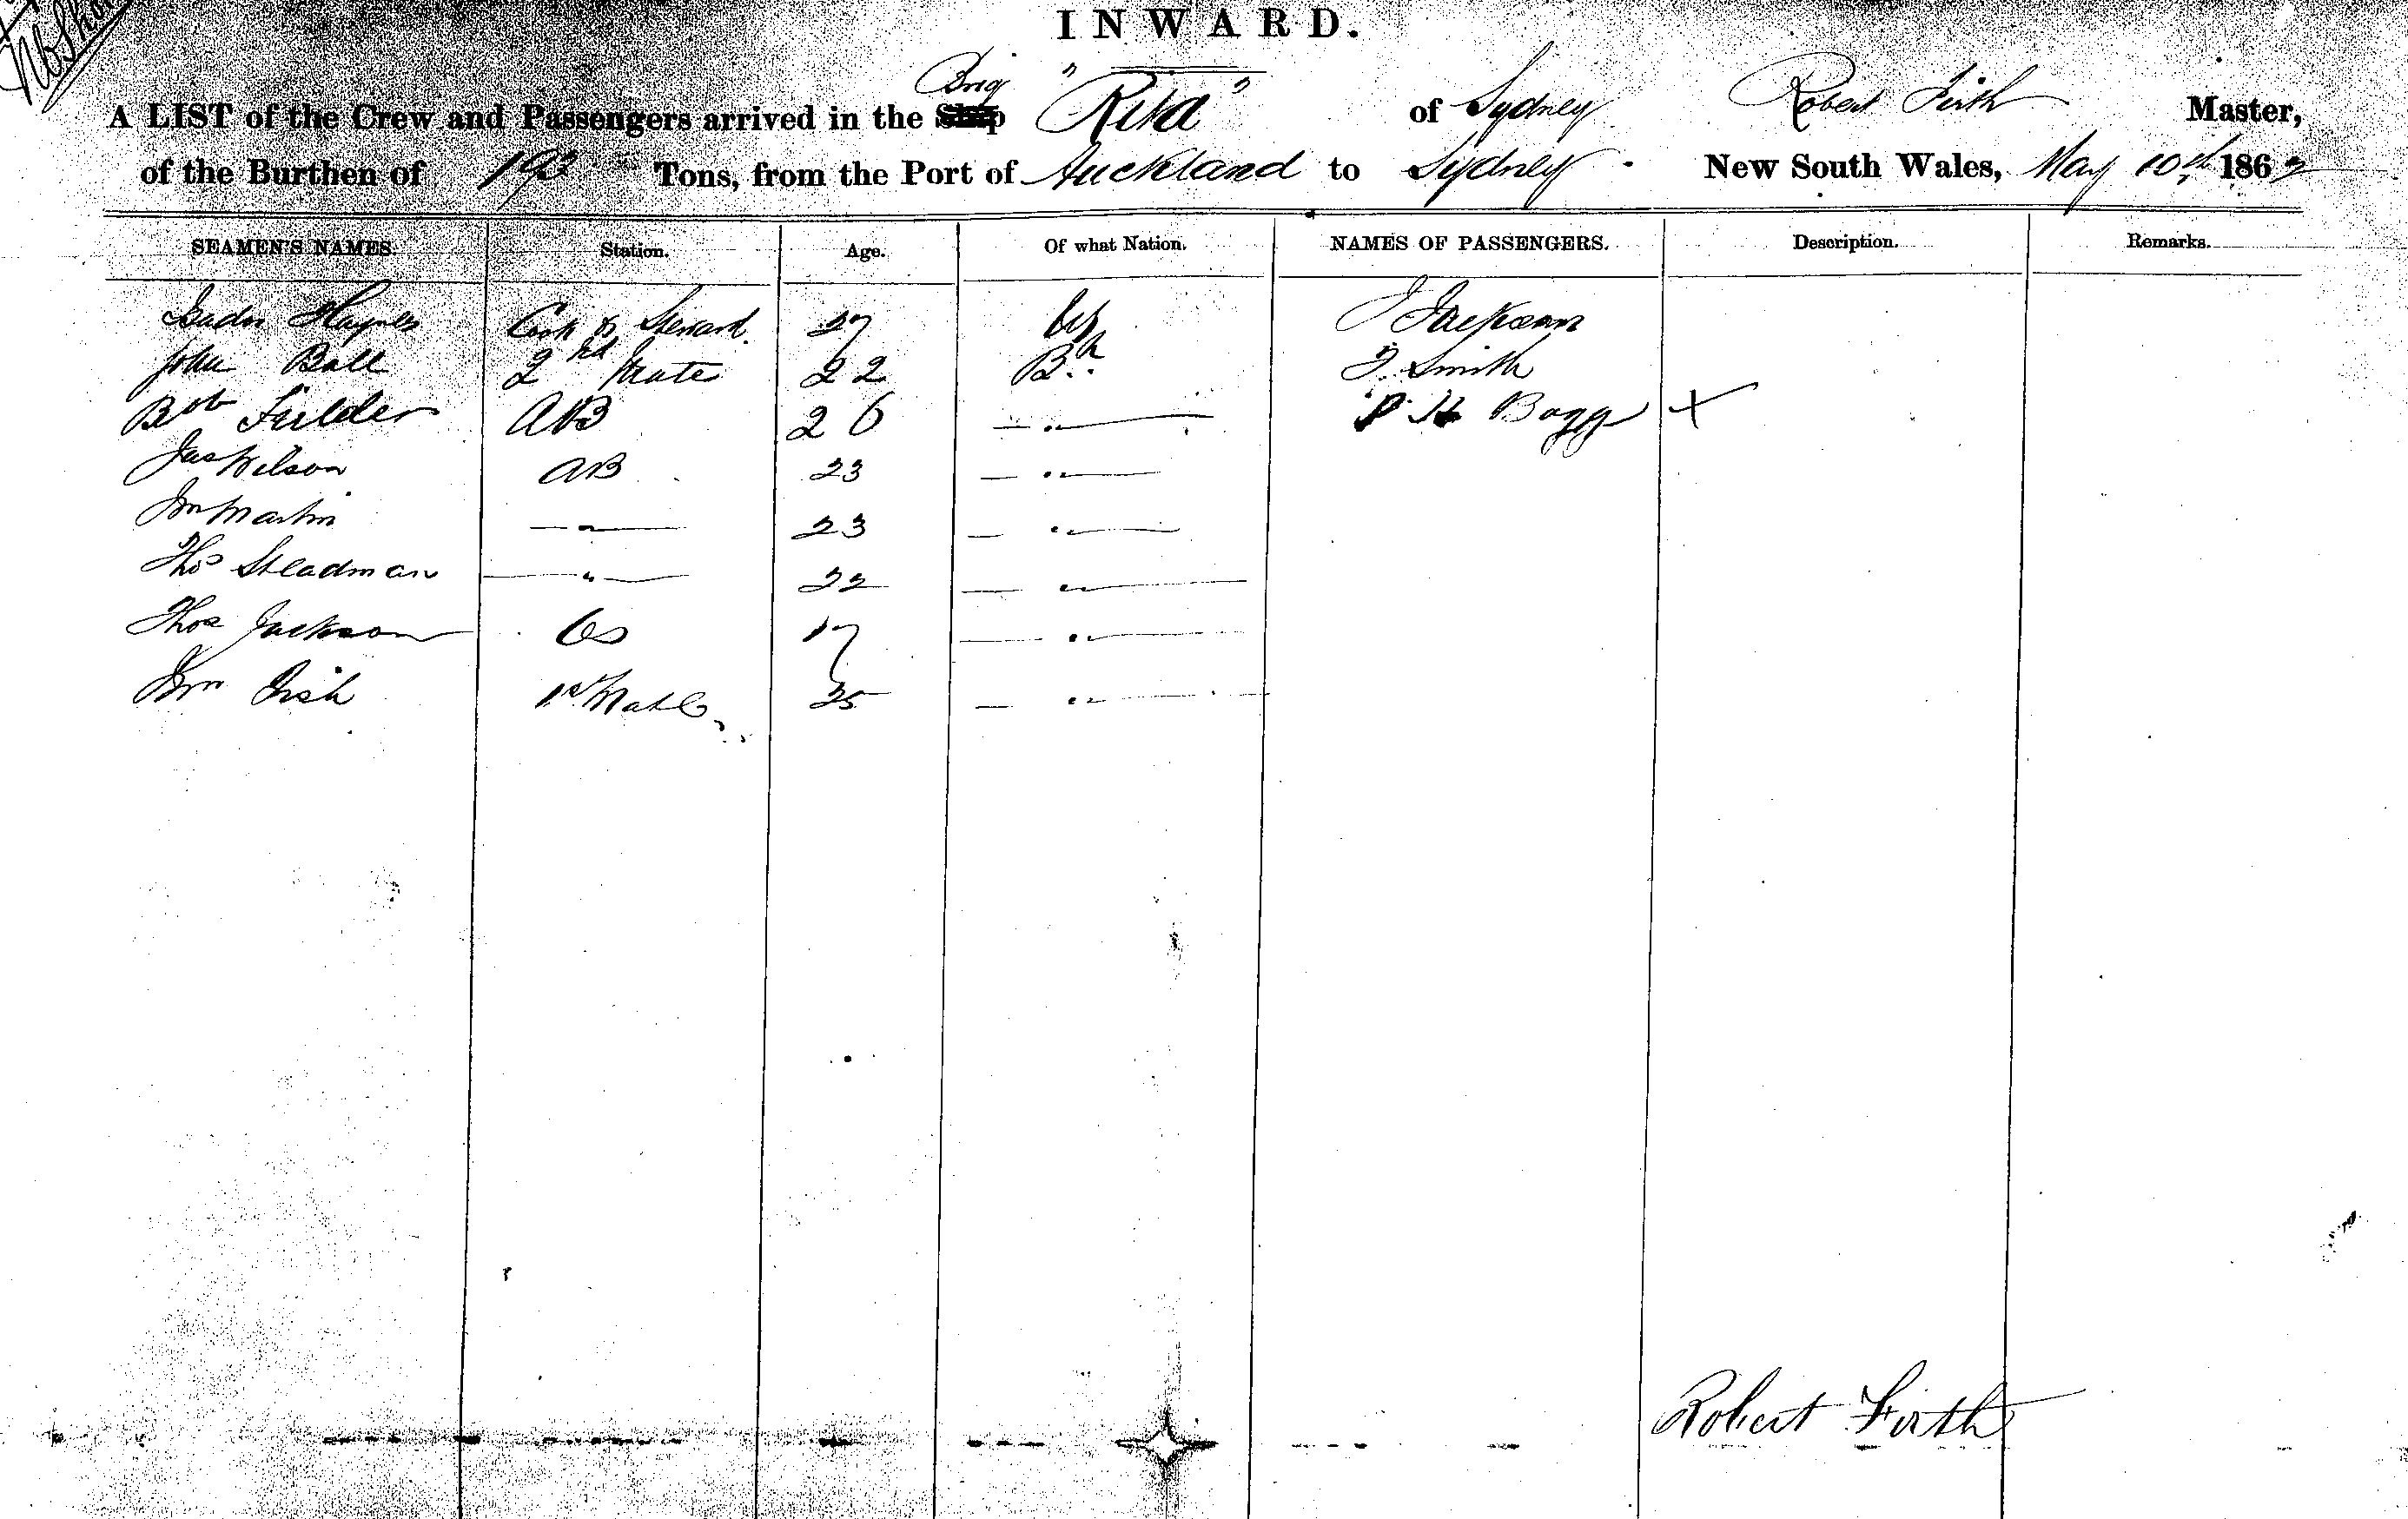 INWARD.
A LIST of the Crew and Passengers arrived in the Brig "Rita" of Sydney Robert Firth Master,
of the Burthen of 193 Tons, from the Port of Auckland to Sydney New South Wales, May 10th 186
SEAMEN'S NAMES. Station. Age. Of what Nation. NAMES OF PASSENGERS. Description. Remarks.
Haynes Cook & Steward 27 J Jackson
John Ball 2nd Mate 22 Bh F. Smith
Bob Fulder AB 26 — " — P H Bagg X
Jas Wilson AB 23 — " —
Jm Martin — " — 23 — " —
Thos Steadman — " — 22 — " —
Thos Jackson OS 17 — " —
Wm Irish 1st Mate 25 — " —
Robert Firth